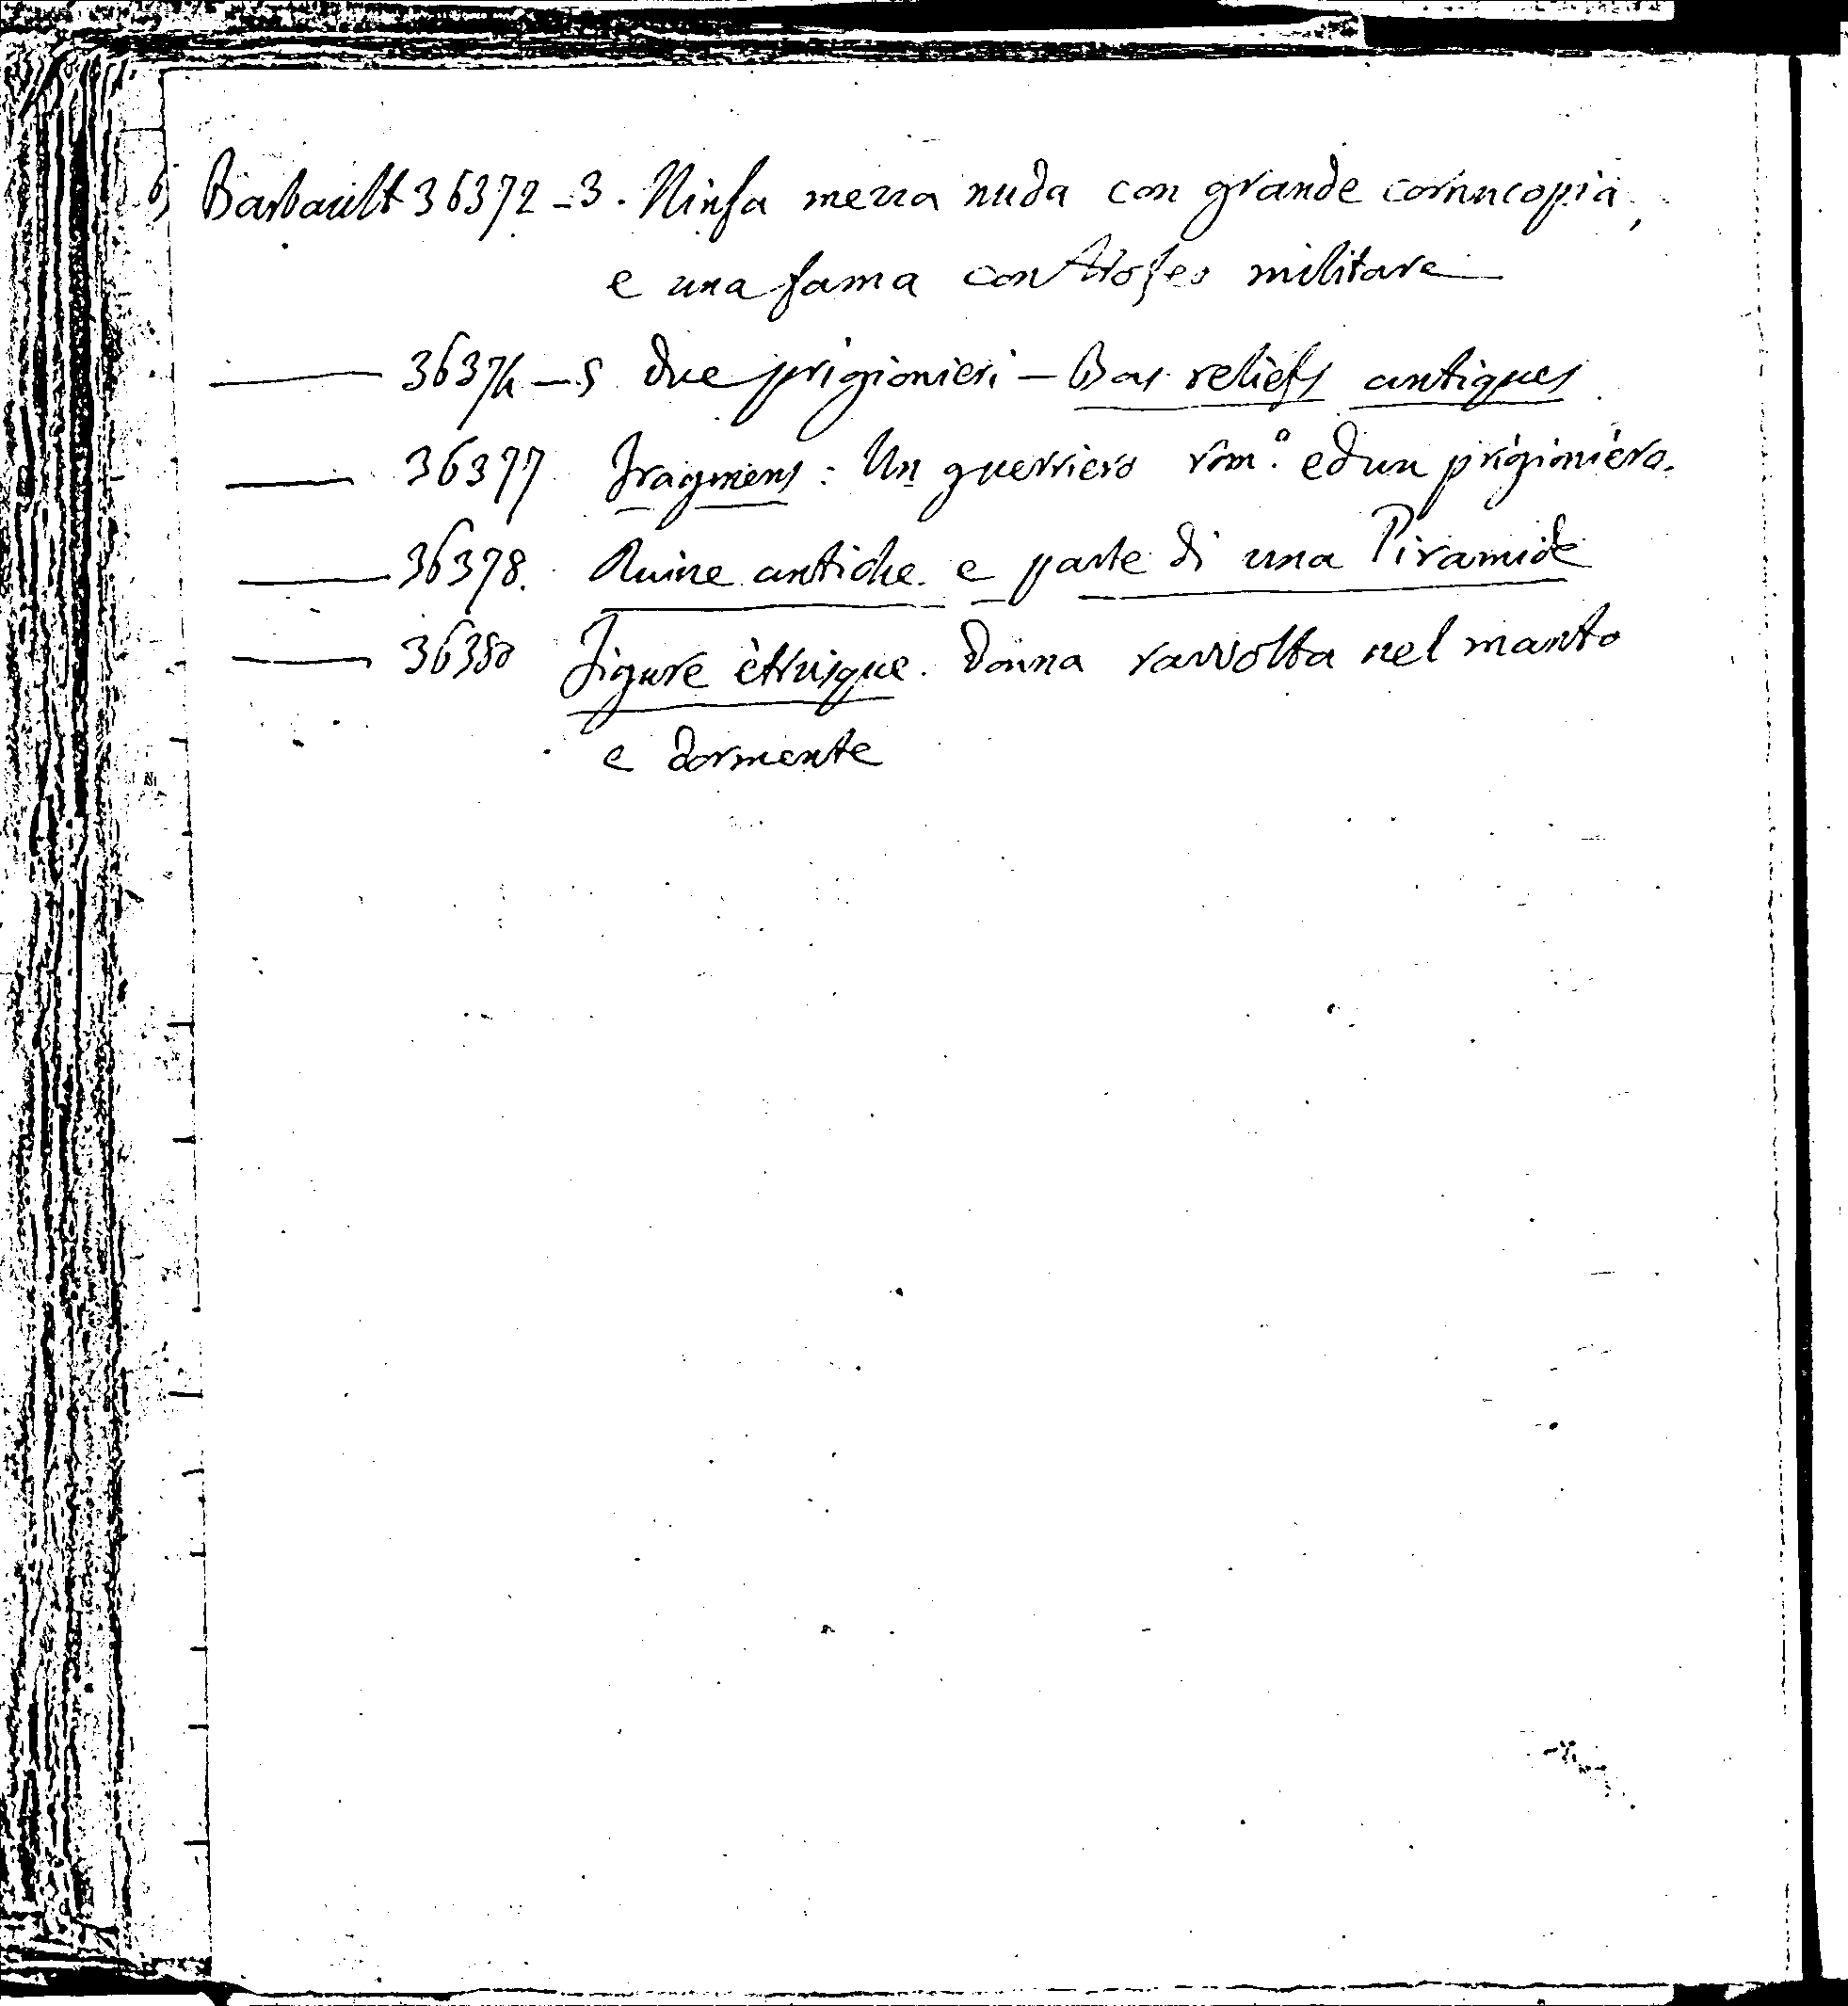 6) Barbault 36372-3. Ninfa mezza nuda con grande cornucopia,
e una fama con trofeo militare
—— 36374-5 due prigionieri - Bas reliefs antiques
—— 36377 Fragmens: Un guerriero rom.º ed un prigioniero.
—— 36378. Ruine antiche e parte di una Piramide
—— 36380 Figure étrusque. Donna ravvolta nel manto
e dormente